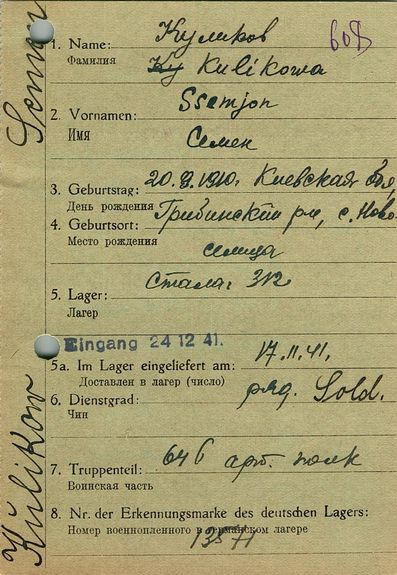 Куликов
608
1. Name:
Фамилия
Ку Kulikowa
Ssemjon
2. Vornamen:
Имя
Семен
3. Geburtstag: 20.9.1910г. Киевская обл,
День рождения
4. Geburtsort: с. Ново-
Место рождения
селица
Сталаг 312
5. Lager:
Лагерь
Eingang 24 12 41.
5a. Im Lager eingeliefert am: 17.11.41.
Доставлен в лагерь (число)
6. Dienstgrad: ряд. Sold.
Чин
7. Truppenteil: 646 арт. полк
Воинская часть
8. Nr. der Erkennungsmarke des deutschen Lagers:
Номер военнопленного в германском лагере
13571
Kulikow
Semen